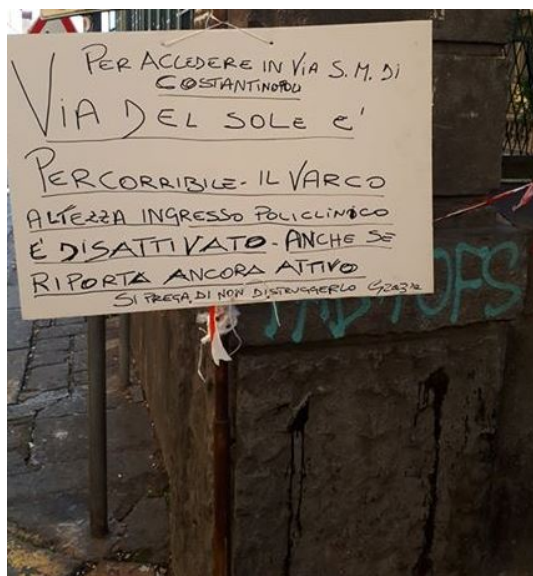 PER ACCEDERE IN VIA S. M. DI
COSTANTINOPOLI
VIA DEL SOLE E'
PERCORRIBILE - IL VARCO
ALTEZZA INGRESSO POLICLINICO
E' DISATTIVATO - ANCHE SE
RIPORTA ANCORA ATTIVO
SI PREGA DI NON DISTRUGGERLO GRAZIE